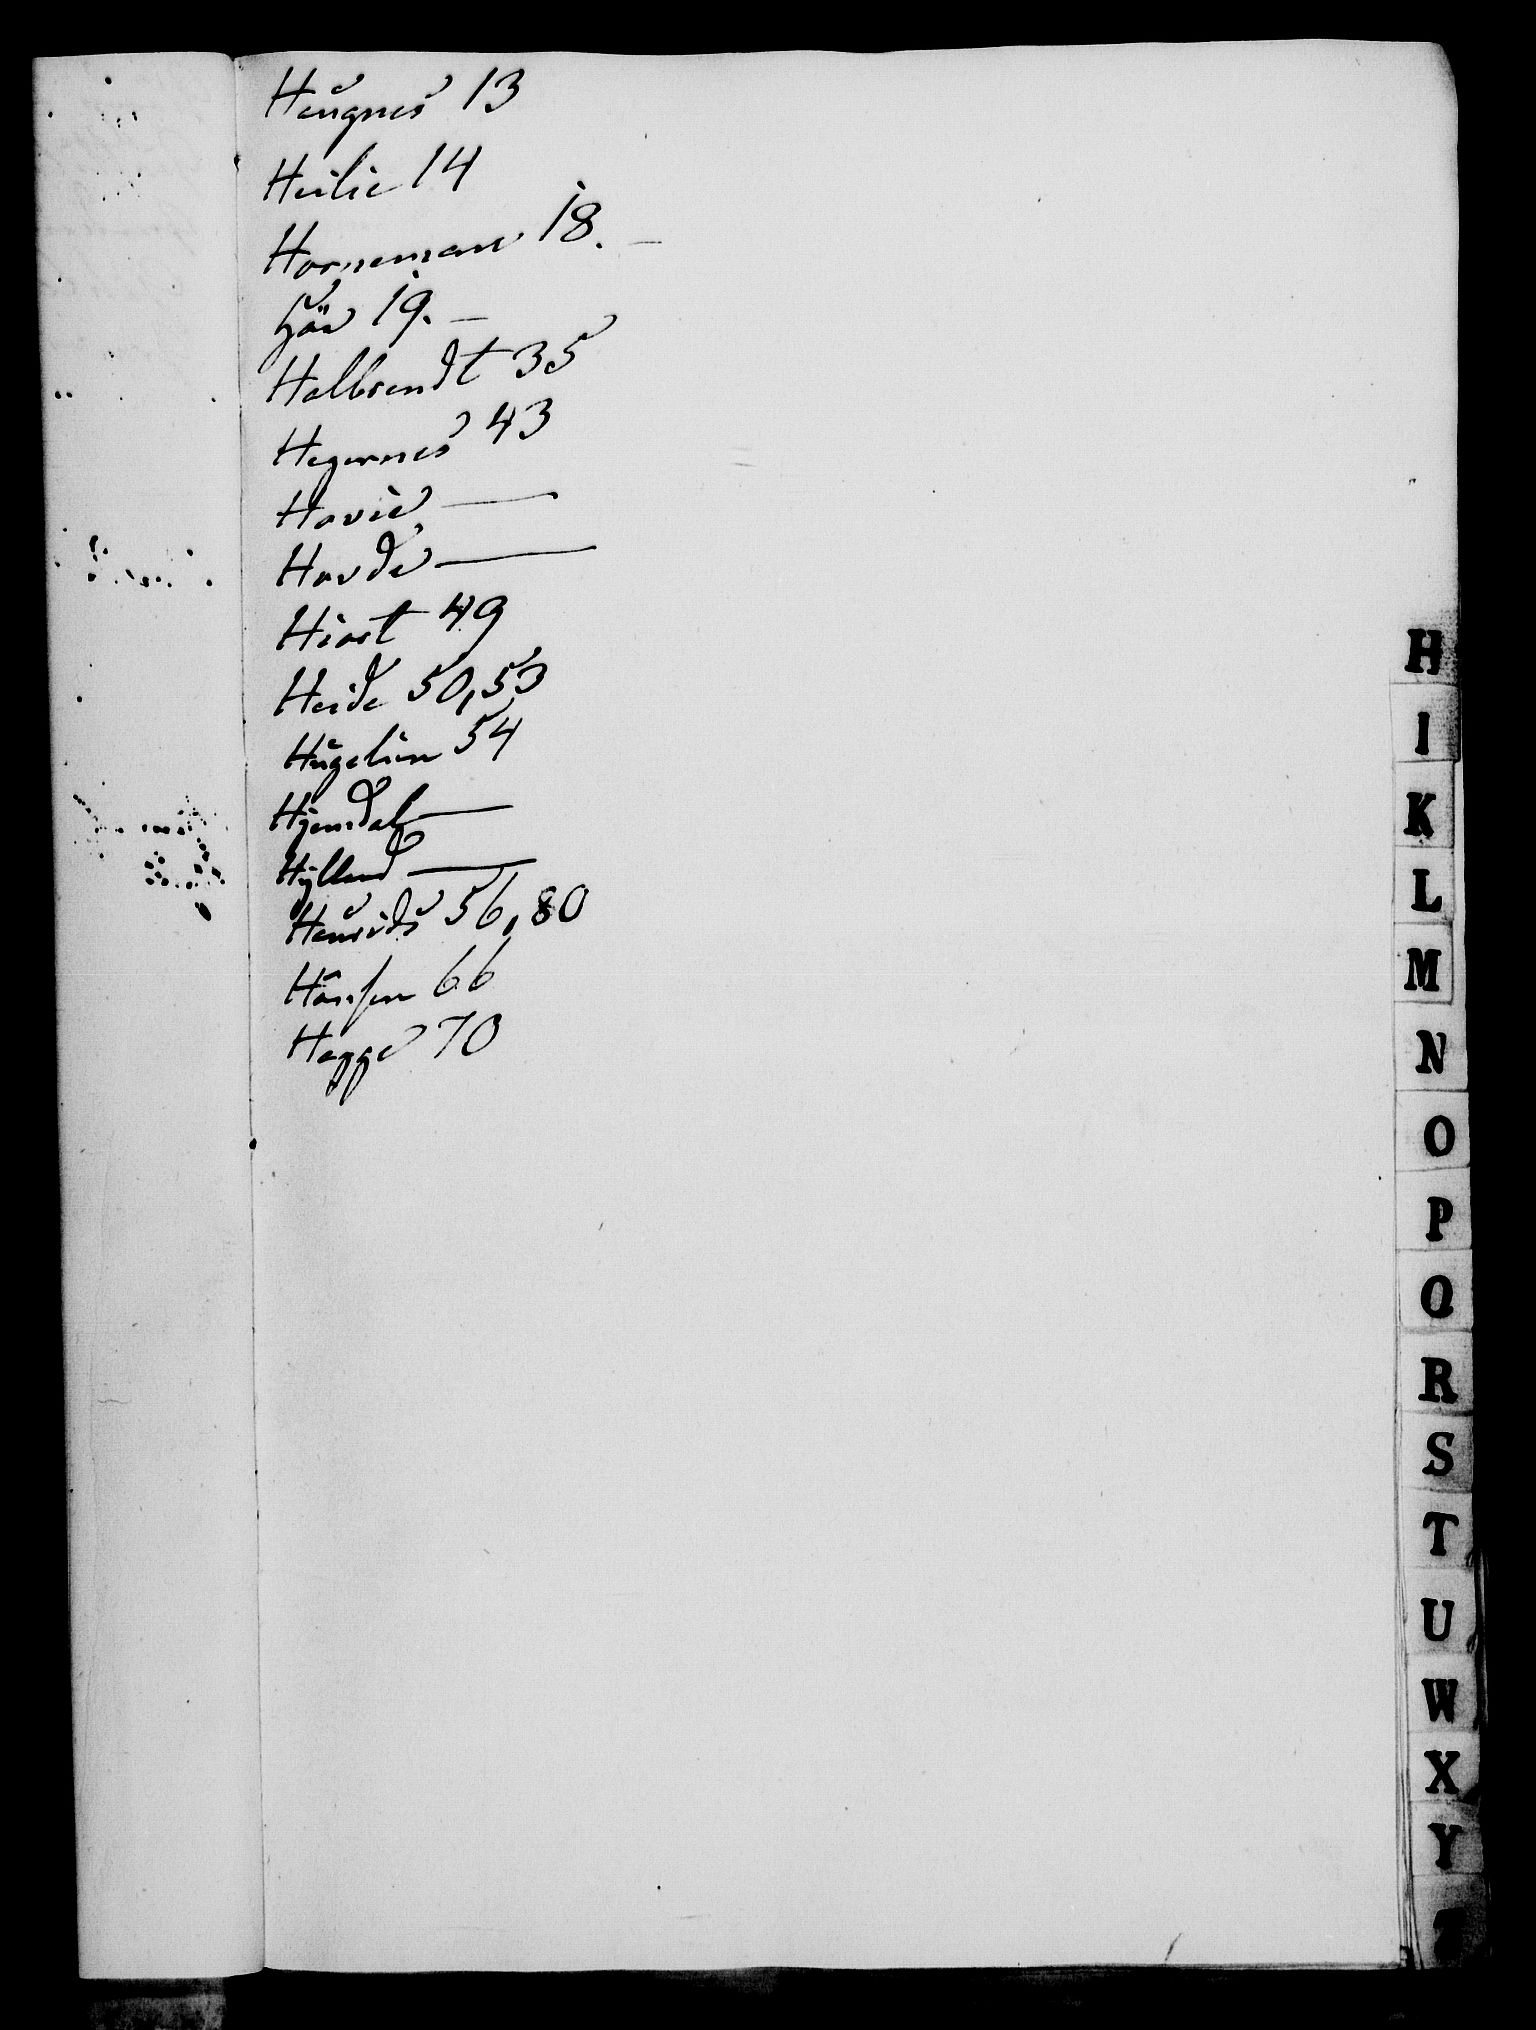 Haugnes 13
Heilie 14
Horneman 18. —
Höe 19. —
Halbrendt 35
Hegernes 43
Hovie —
Hovde —
Hiort 49
Heide 50,53
Hugelien 54
Hjemdal —
Hylland —
56,80
Hansen 66
Hagge 70
H
I
K
L
M
N
O
P
Q
R
S
T
U
W
X
Y